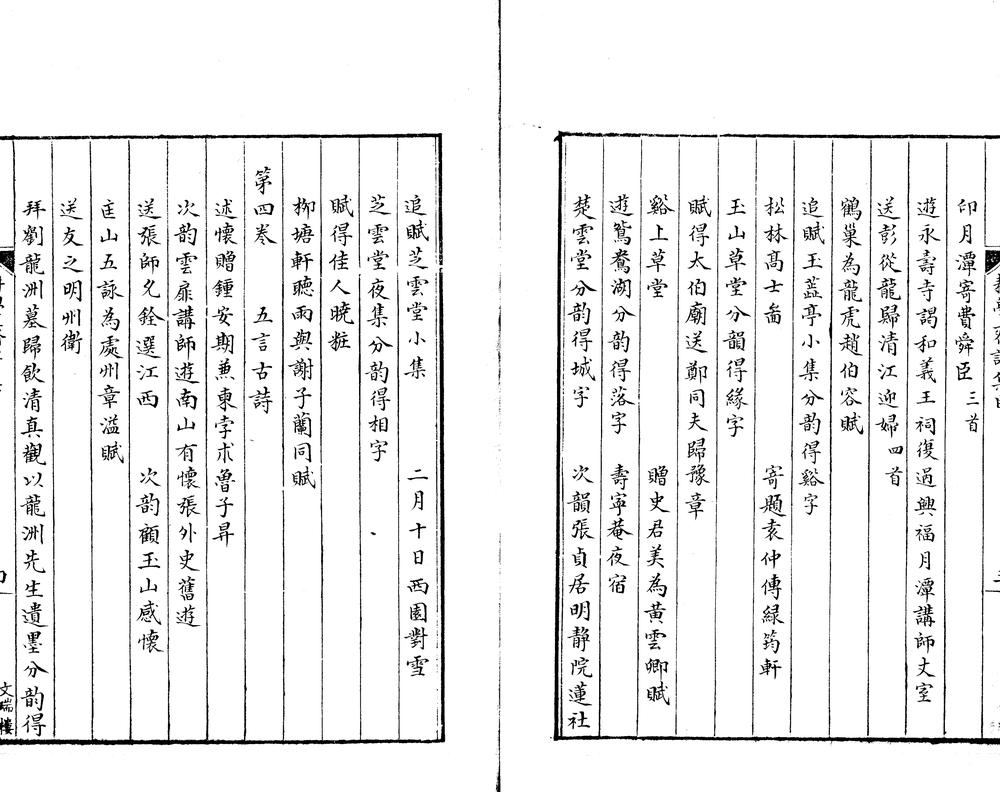 印月潭寄費舜臣三首
遊永壽寺謁和義王祠復過興福月潭講師丈室
送彭從龍歸清江迎婦四首
鶴巢為龍虎趙伯容賦
追賦玉蕋亭小集分韵得谿字
松林髙士啚 寄題袁仲傳緑筠軒
玉山草堂分韻得緣字
賦得太伯廟送鄭同夫歸豫章
谿上草堂 贈史君美為黃雲卿賦
遊鴛鴦湖分韵得落字 壽寧菴夜宿
楚雲堂分韵得城字 次韻張貞居明静院蓮社
追賦芝雲堂小集 二月十日西園對雪
芝雲堂夜集分韵得相字
賦得佳人曉粧
柳塘軒聽雨與謝子蘭同賦
第四卷 五言古詩
述懷贈鍾安期兼柬孛朮魯子昇
次韵雲扉講師遊南山有懷張外史舊遊
送張師允銓選江西 次韵顧玉山感懷
匡山五詠為處州章溢賦
送友之明州衛
拜劉龍洲墓歸飲清真觀以龍洲先生遺墨分韵得
文瑞樓